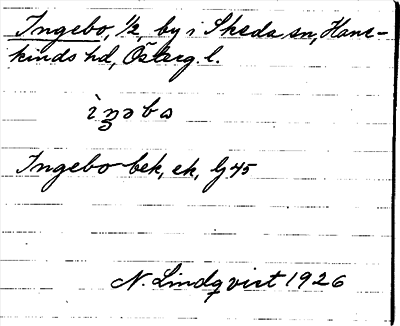 Ingebo, 1/2, by i Skeda sn, Hane-
kinds hd, Österg. l.
ìŋəbə
Ingebo bek, ek, lj 45
N. Lindqvist 1926